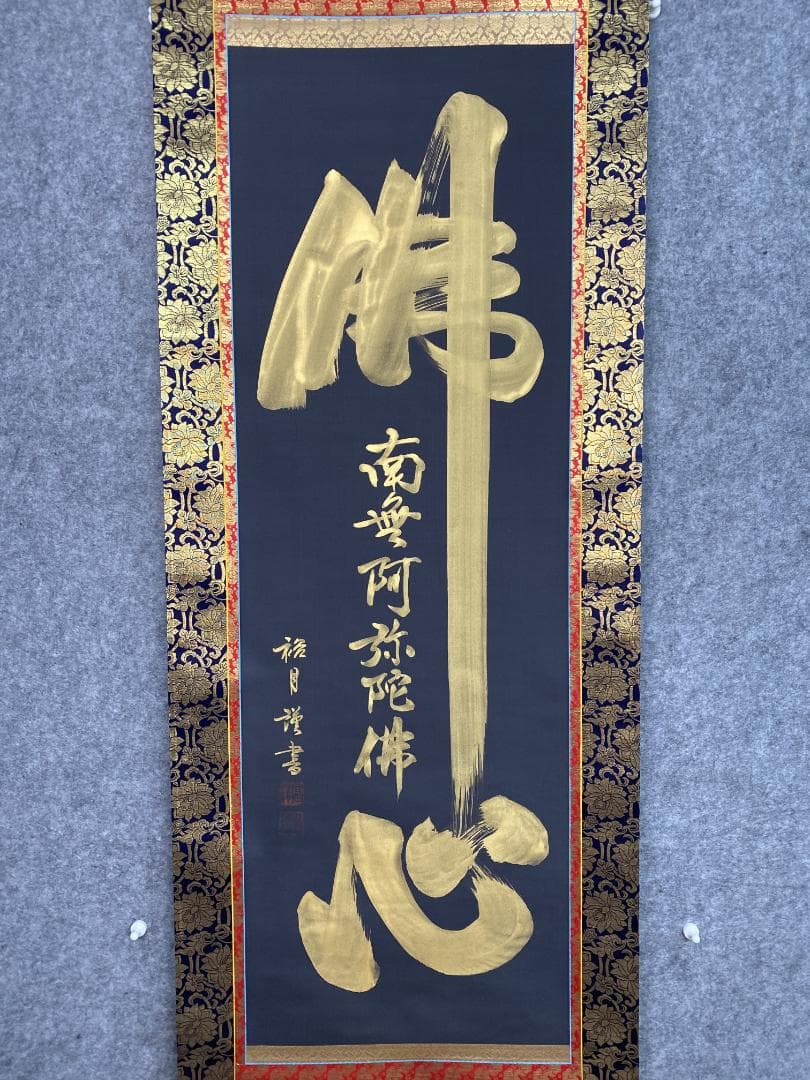 佛心
南無阿弥陀佛
裕月謹書